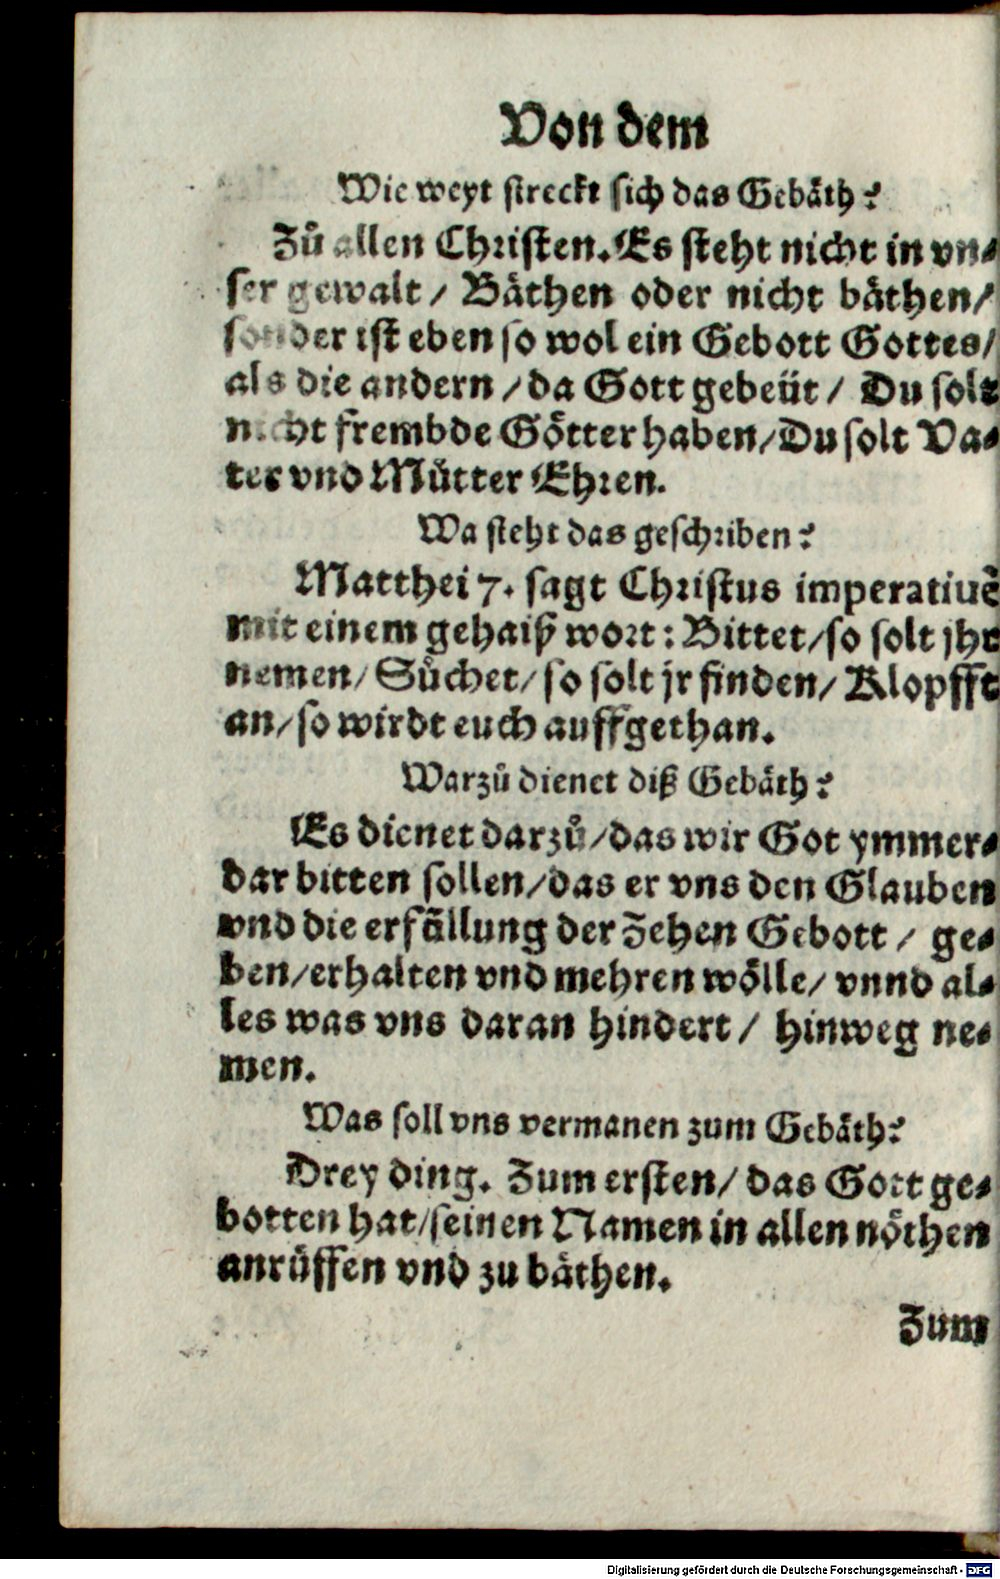 Von dem
Wie weyt streckt sich das Gebäth?
Zů allen Christen. Es steht nicht in vn⸗
ser gewalt / Bäthen oder nicht bäthen/
sonder ist eben so wol ein Gebott Gottes/
als die andern / da Gott gebeüt / Du solt
nicht frembde Götter haben/Du solt Va⸗
ter vnd Můtter Ehren.
Wa steht das geschriben?
Matthei 7. sagt Christus imperatiuè
mit einem gehaiß wort: Bittet/so solt jhr
nemen/ Sůchet/ so solt jr finden/ Klopfft
an/so wirdt euch auffgethan.
Warzů dienet diß Gebäth?
Es dienet darzů/das wir Got ymmer⸗
dar bitten sollen/das er vns den Glauben
vnd die erfüllung der Zehen Gebott / ge⸗
ben/erhalten vnd mehren wölle/ vnnd al⸗
les was vns daran hindert / hinweg ne⸗
men.
Was soll vns vermanen zum Gebäth?
Drey ding. Zum ersten/ das Gott ge⸗
botten hat/seinen Namen in allen nöthen
anrůffen vnd zu bäthen.
Zum
Digitalisierung gefördert durch die Deutsche Forschungsgemeinschaft - DFG